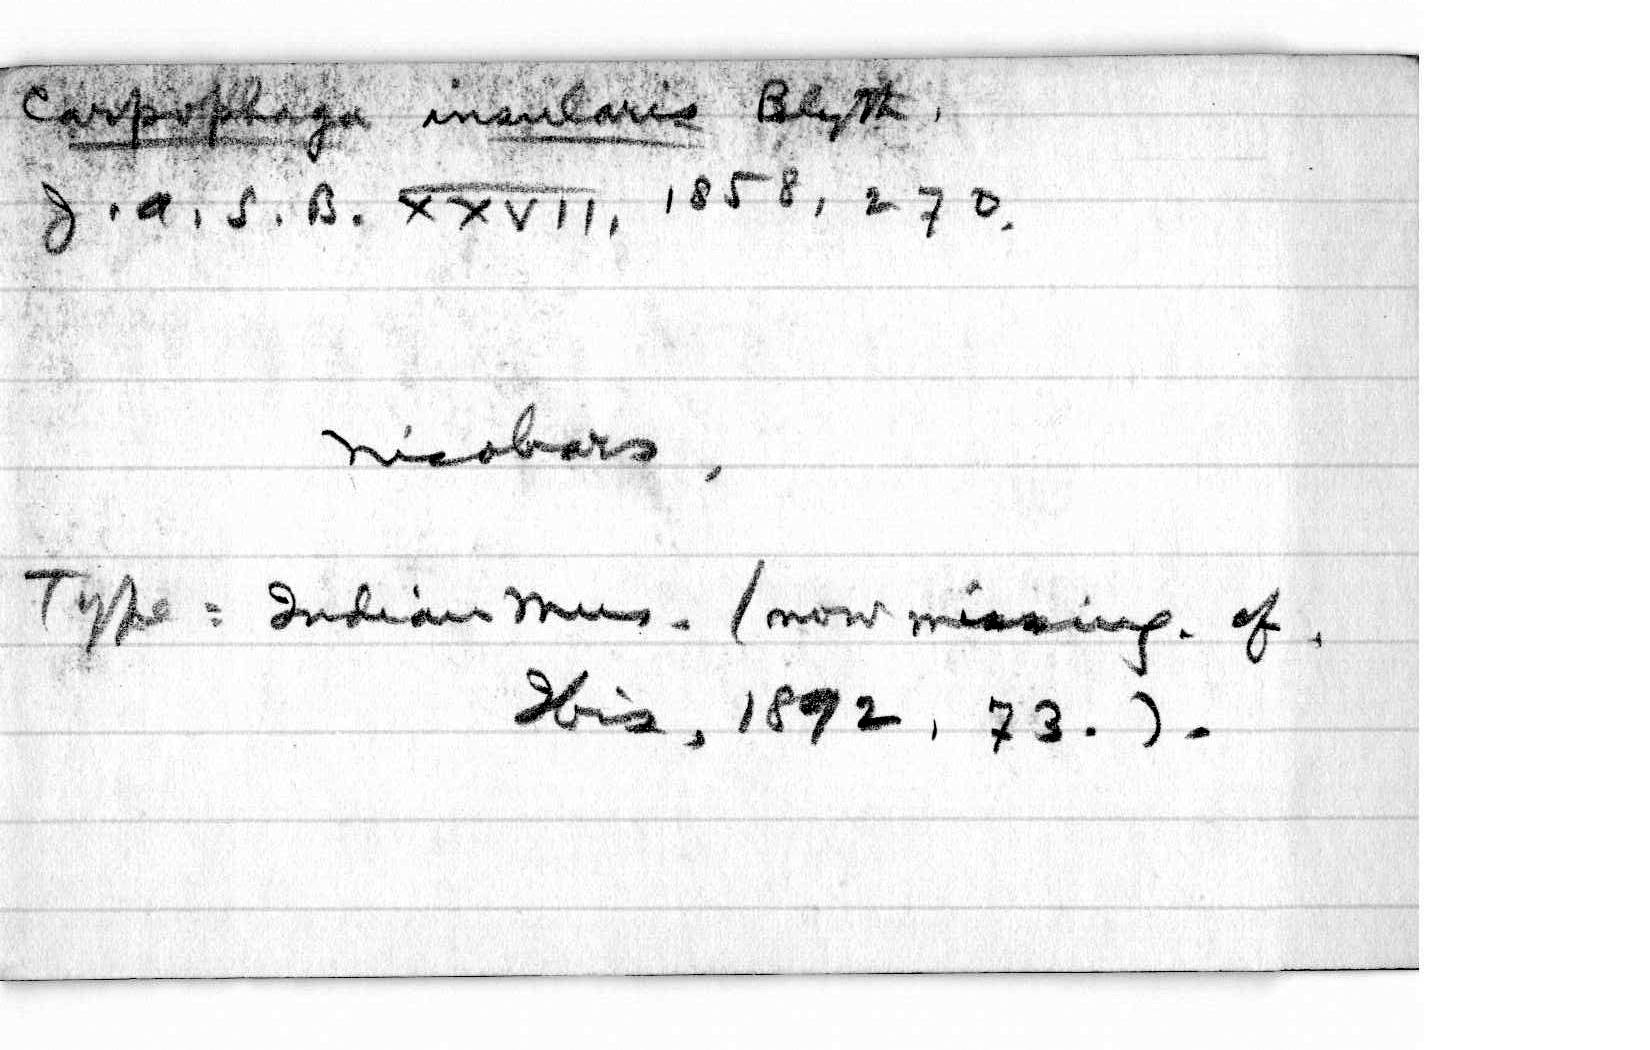 Carpophaga insularis Blyth.
J.A.S.B. XXVII, 1858, 270.
Nicobars,
Type = Indian Mus. (now missing. cf.
Ibis, 1892, 73.).